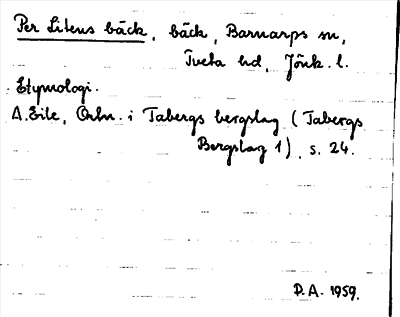 Per Litens bäck, bäck, Barnarps sn,
Tveta hd, Jönk. l.
Etymologi.
A. Eile, Ortn. i Tabergs bergslag (Tabergs
Bergslag 1), s. 24.
P.A. 1959.